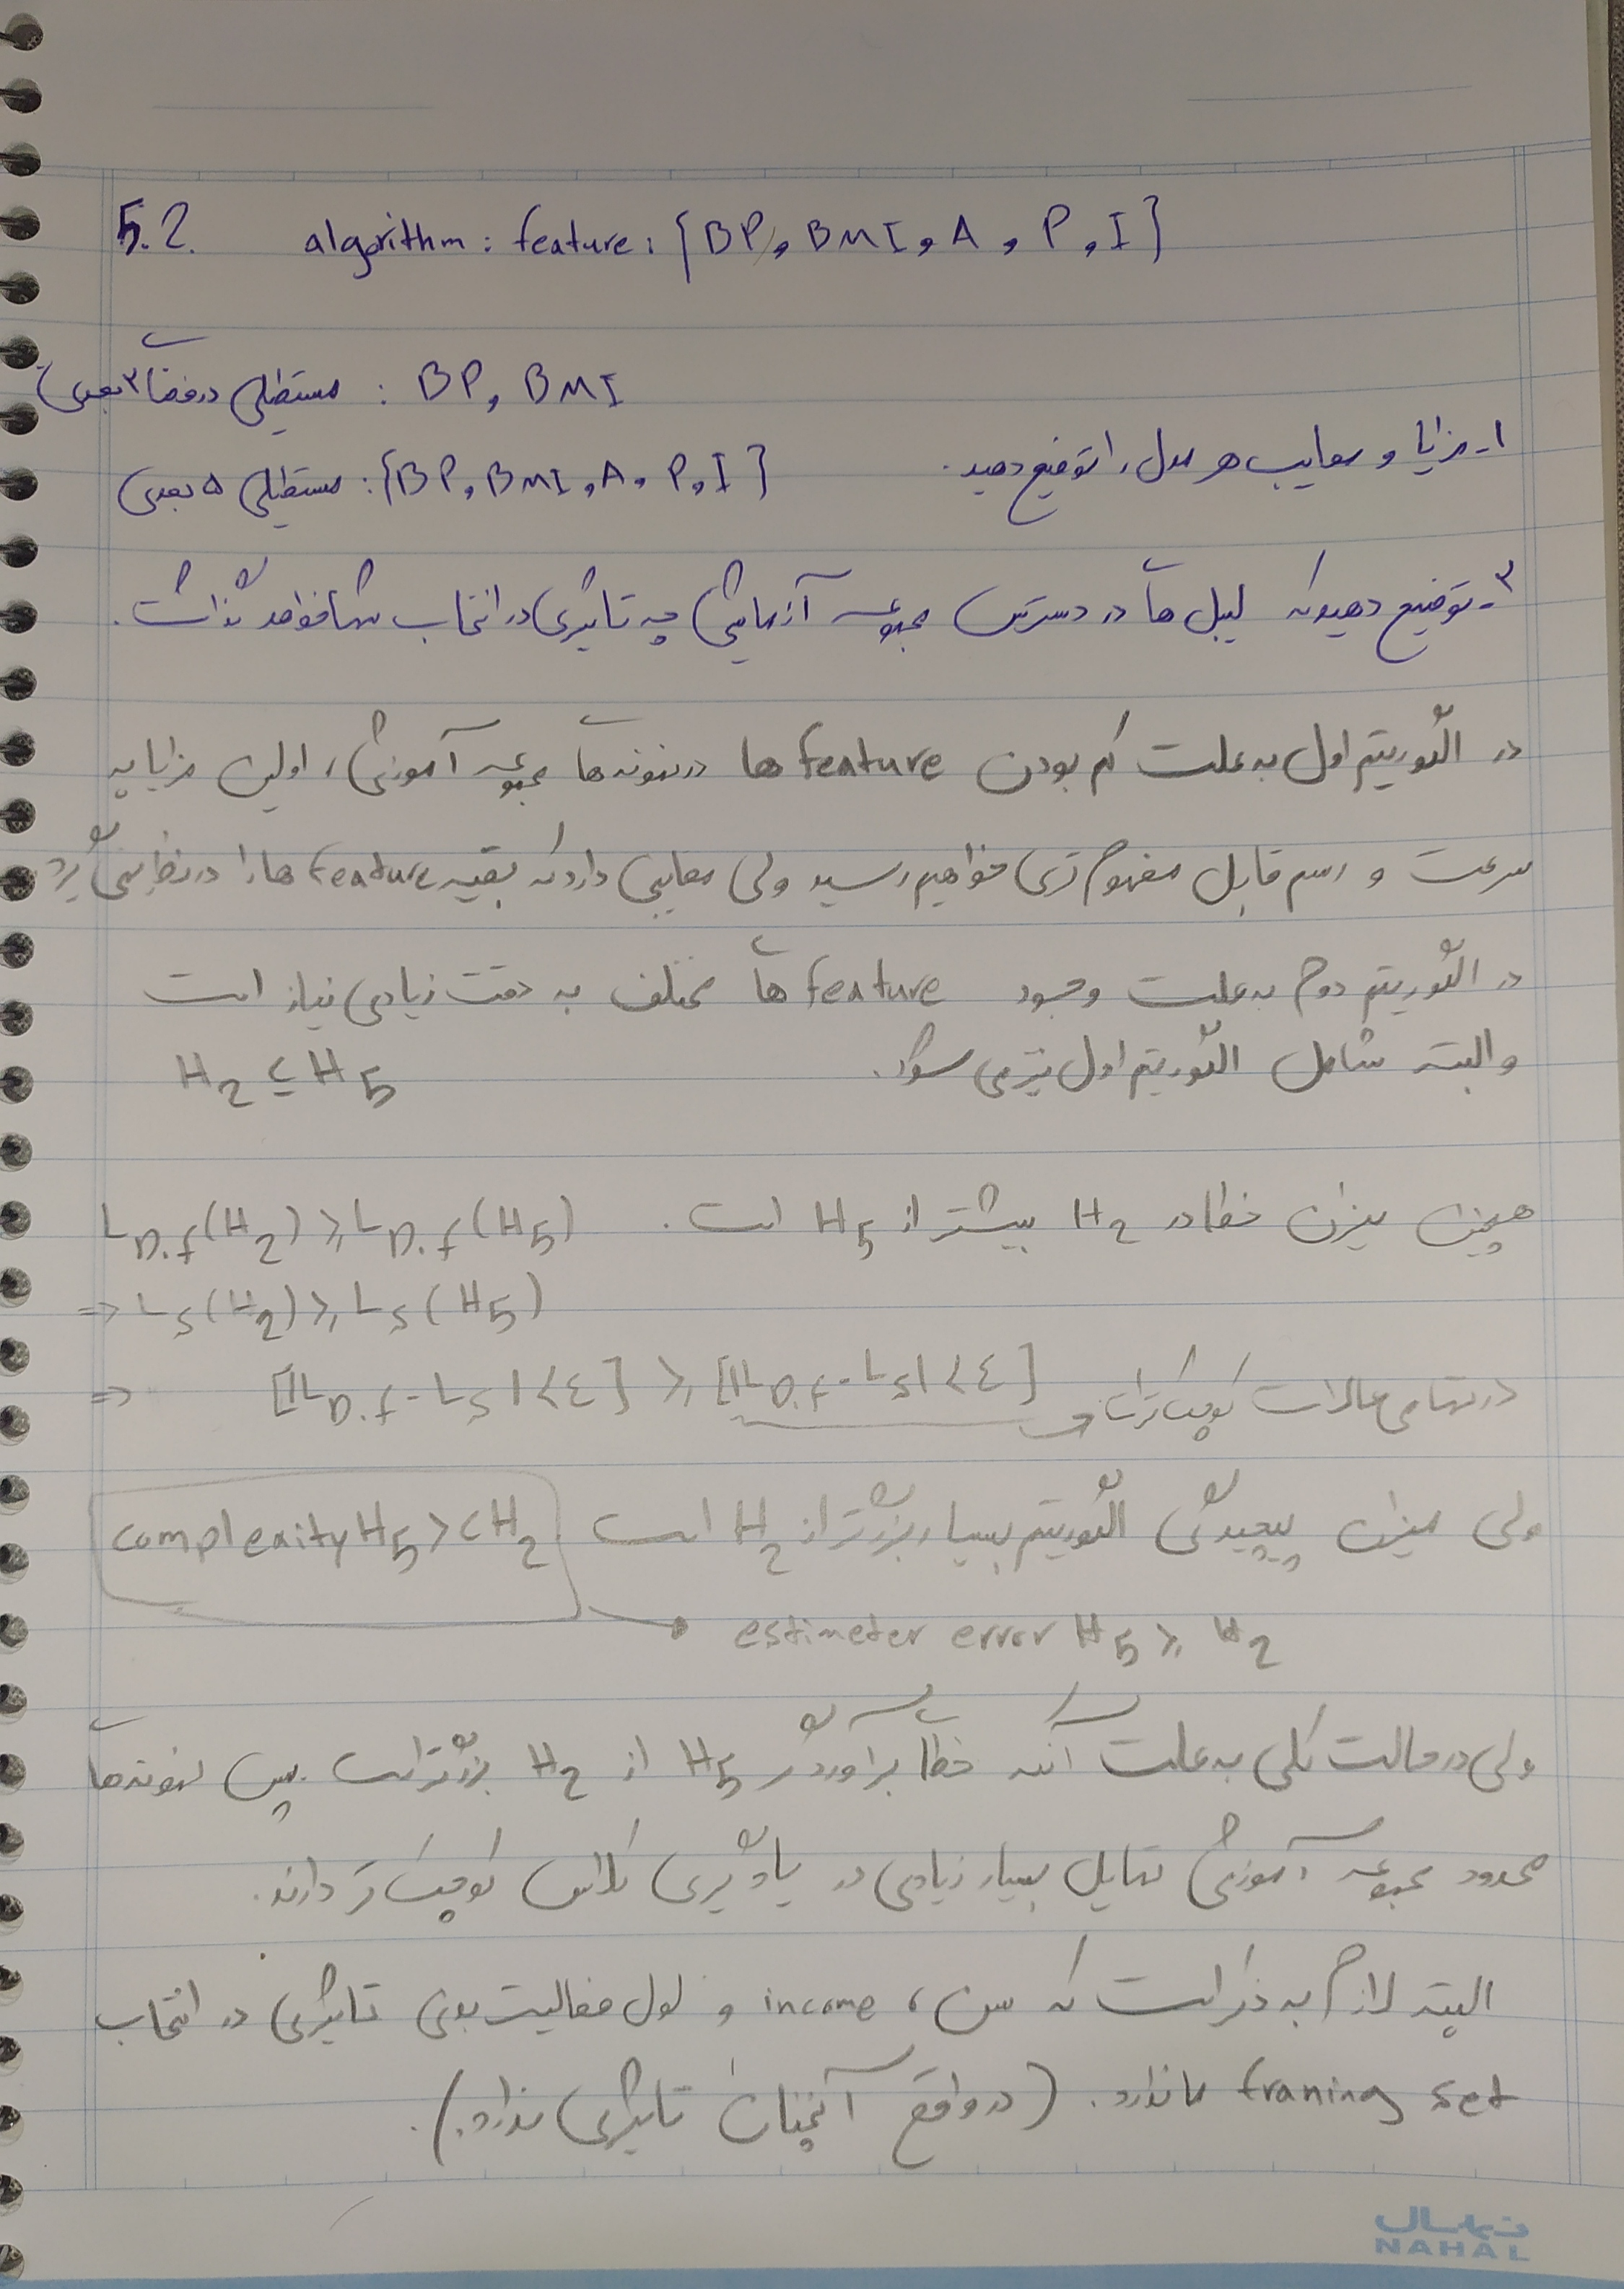 5.2. algorithm: feature: {BP, BMI, A, P, I}
BP, BMI : مستطیلی در فضای ۲ بعدی
۱- مزایا و معایب هر مدل را توضیح دهید.
{BP, BMI, A, P, I} : مستطیلی ۵ بعدی
۲- توضیح دهید که لیبل های در دسترس مجموعه آزمایشی چه تاثیری در انتخاب شما خواهد گذاشت.
در الگوریتم اول به علت کم بودن feature ها در نمونه های مجموعه آموزشی، اولین مزایا به
سرعت و رسم قابل مفهوم تری خواهیم رسید ولی معایبی دارد که بقیه feature ها را در نظر نمی گیرد
در الگوریتم دوم به علت وجود feature های مختلف به دقت زیادی نیاز است
و البته شامل الگوریتم اول نیز می شود. H2 ⊆ H5
همچنین میزان خطا در H2 بیشتر از H5 است. L D.f (H2) ≥ L D.f (H5)
=> L s (H2) ≥ L s (H5)
در تمامی حالات کوچکتر است [|L D.f - L s| > ε] ≤ [|L D.f - L s| > ε] =>
ولی میزان پیچیدگی الگوریتم بسیار بزرگتر از H2 است complexity H5 > C H2
estimeter error H5 ≥ H2
ولی در حالت کلی به علت آنکه خطای برآوردگر H5 از H2 بزرگتر است پس نمونه های
محدود مجموعه آموزشی تمایل بسیار زیادی در یادگیری کلاس کوچک تر دارند.
البته لازم به ذکر است که سن، income و لول فعالیت بدنی تاثیری در انتخاب
traning set ما ندارد. (در واقع آنچنان تاثیری ندارد).
نهال
NAHAL